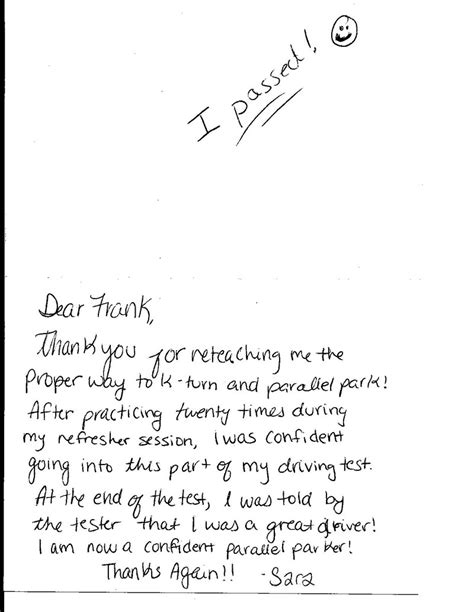 I passed!
Dear Frank,
Thank you for reteaching me the
proper way to k-turn and parallel park!
After practicing twenty times during
my refresher session, I was confident
going into this part of my driving test.
At the end of the test, I was told by
the tester that I was a great driver!
I am now a confident parallel parker!
Thanks Again!! -Sara